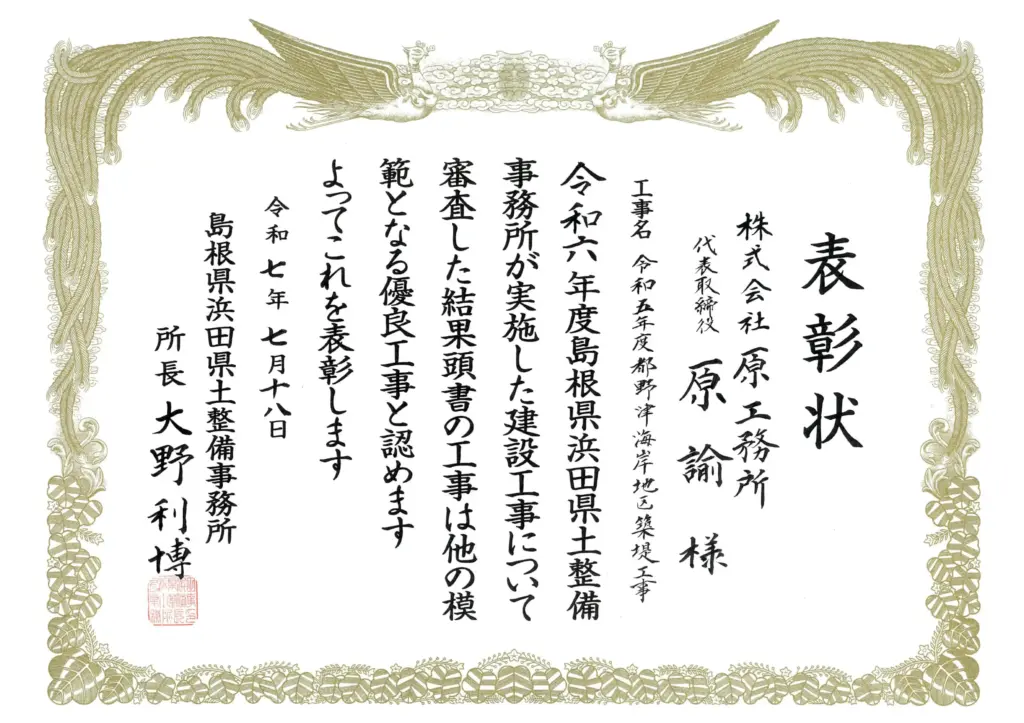 表彰状
株式会社原工務所
代表取締役 原諭様
工事名 令和五年度都野津海岸地区築堤工事
令和六年度島根県浜田県土整備
事務所が実施した建設工事について
審査した結果頭書の工事は他の模
範となる優良工事と認めます
よってこれを表彰します
令和七年七月十八日
島根県浜田県土整備事務所
所長 大野利博